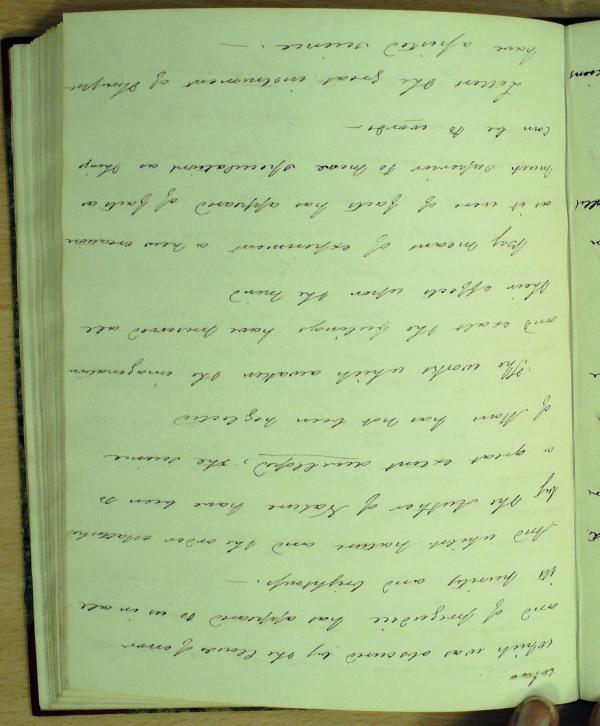 which was obscured by the clouds of error
and of prejudice has appeared to us in all
its purity and brightness. —
And whilst nature and the order established
by the Author of Nature have been to
a great extent developed, the science
of Man has not been neglected
The works which awaken the imagination
and exalt the feelings have preserved all
their effects upon the mind
By means of experiment a new creation
as it were of facts has appeared of facts as
much superior to mere speculations as things
can be to words —
Letters the great instrument of thought
have a fruited science. —